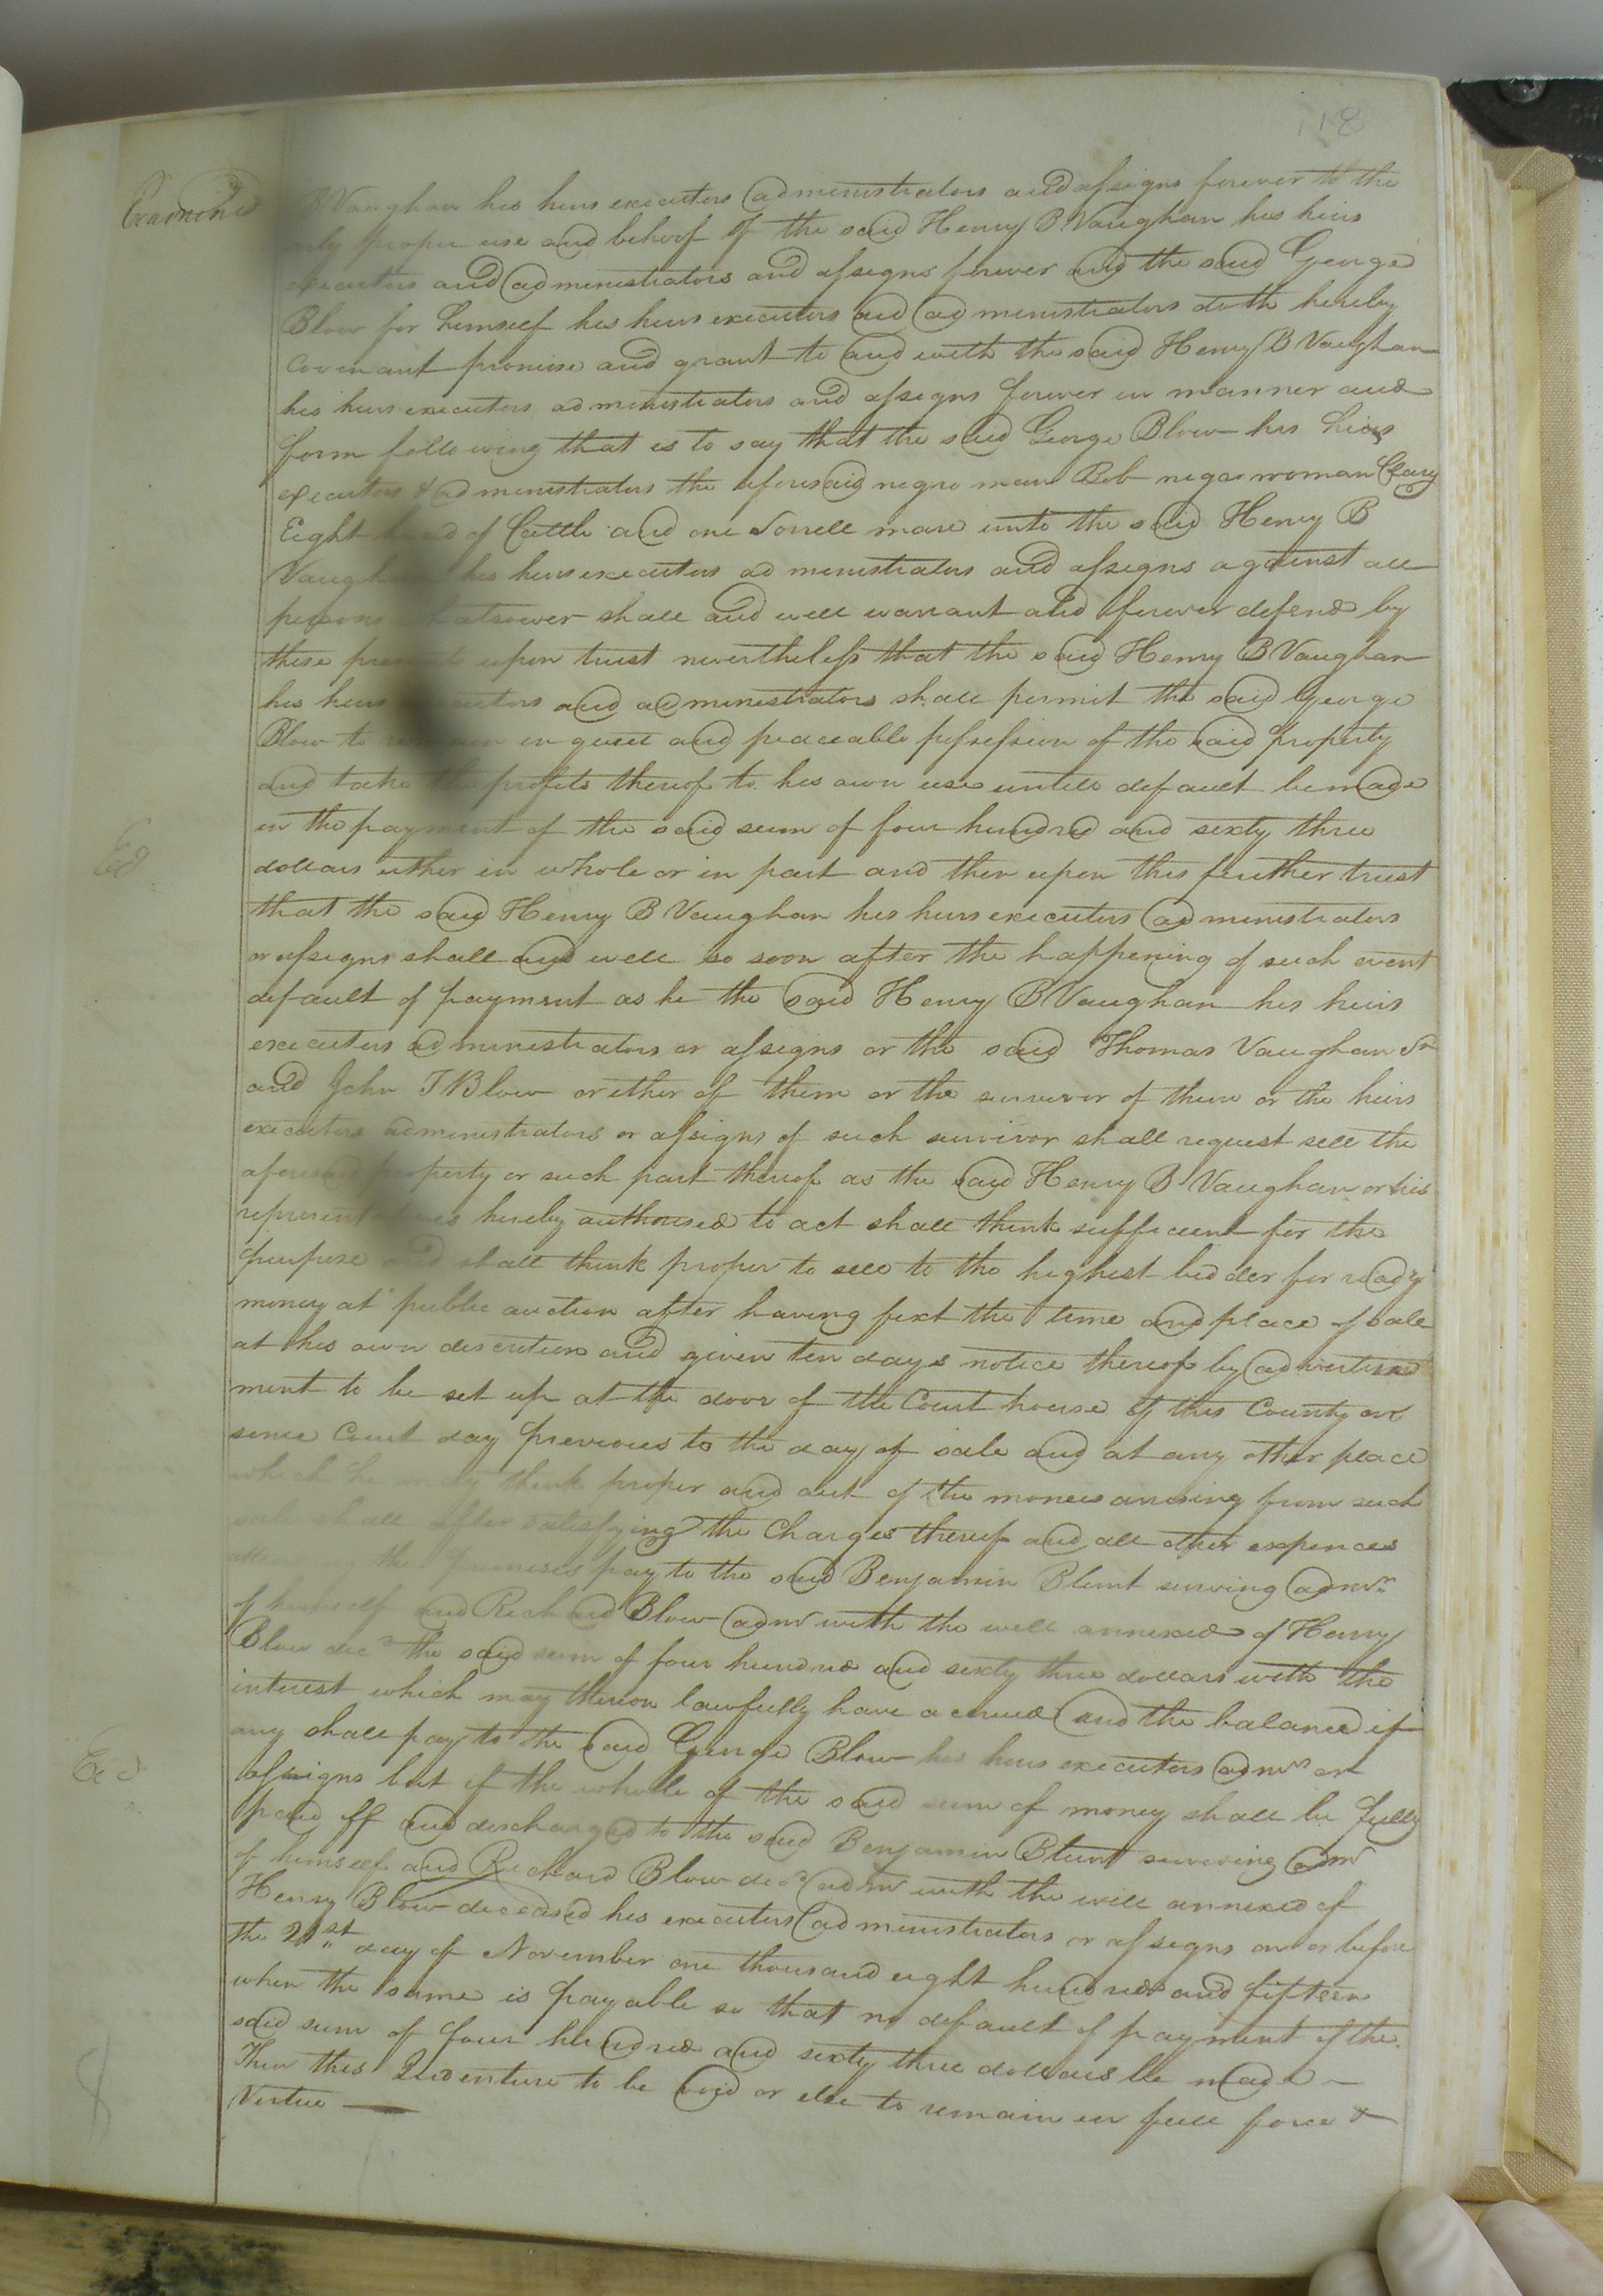 118
Examined
B Vaughan his heirs executors administrators and assigns forever to the
only proper use and behoof of the said Henry B Vaughan his heirs
executors and administrators and assigns forever and the said George
Blow for himself his heirs executors and administrators doth hereby
covenant promise and grant to and with the said Henry B Vaughan
his heirs executors administrators and assigns forever in manner and
form following that is to say that the said George Blow his heirs
executors & administrators the aforesaid negro man Bob negro woman Clary
Eight head of Cattle and one Sorrell mare unto the said Henry B
Vaughan his heirs executors administrators and assigns against all
persons whatsoever shall and will warrant and forever defend by
these presents upon trust nevertheless that the said Henry B Vaughan
his heirs executors and administrators shall permit the said George
Blow to remain in quiet and peaceable possession of the said property
and take the profits thereof to his own use untill default be made
in the payment of the said sum of four hundred and sixty three
dollars either in whole or in part and then upon this further trust
that the said Henry B Vaughan his heirs executors administrators
or assigns shall and will so soon after the happening of such event
default of payment as he the said Henry B Vaughan his heirs
executors administrators or assigns or the said Thomas Vaughan Sr
and John T Blow or either of them or the survivor of them or the heirs
executors administrators or assigns of such survivor shall request sell the
aforesaid property or such part thereof as the said Henry B Vaughan or his
representatives hereby authorised to act shall think sufficient for the
purpose and shall think proper to sell to the highest bidder for ready
money at public auction after having fixt the time and place of sale
at his own discretion and given ten days notice thereof by advertise
ment to be set up at the door of the Court house of this County on
some Court day previous to the day of sale and at any other place
which he may think proper and out of the monies arising from such
sale shall after satisfying the Charges thereof and all other expences
the premises pay to the said Benjamin Blunt surving admr
of himself and Richard Blow admr with the will annexed of Henry
Blow decd the said sum of four hundred and sixty three dollars with the
interest which may thereon lawfully have accrued and the balance if
any shall pay to the said George Blow his heirs executors admrs or
assigns but if the whole of the said sum of money shall be fully
paid off and discharged to the said Benjamin Blunt surviving admr
of himself and Richard Blow decd admr with the will annexed of
Henry Blow deceased his executors administrators or assigns on or before
the 21st day of November one thousand eight hundred and fifteen
when the same is payable so that no default of payment of the
said sum of four hundred and sixty three dollars be made
Then this Indenture to be void or else to remain in full force &
Virtue